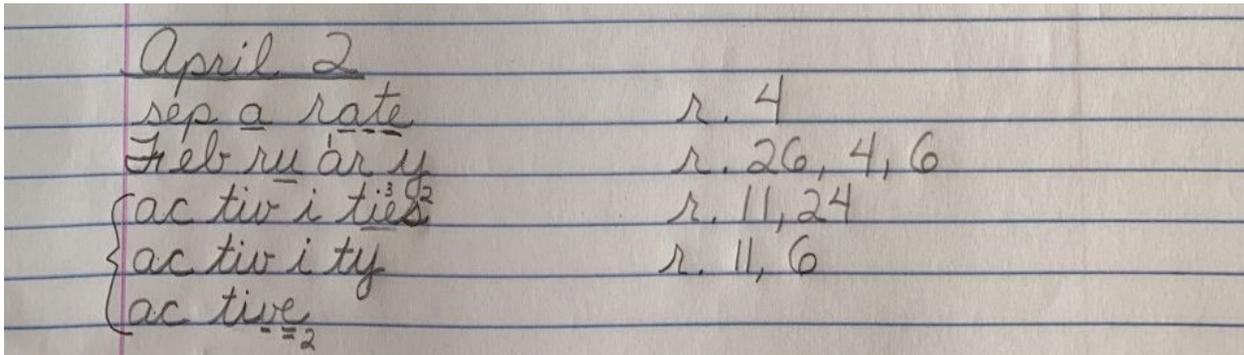 April 2
sep a rate r. 4
Feb ru ar y r. 26, 4, 6
ac tiv i ties ³ ² r. 11, 24
ac tiv i ty r. 11, 6
ac tive 2